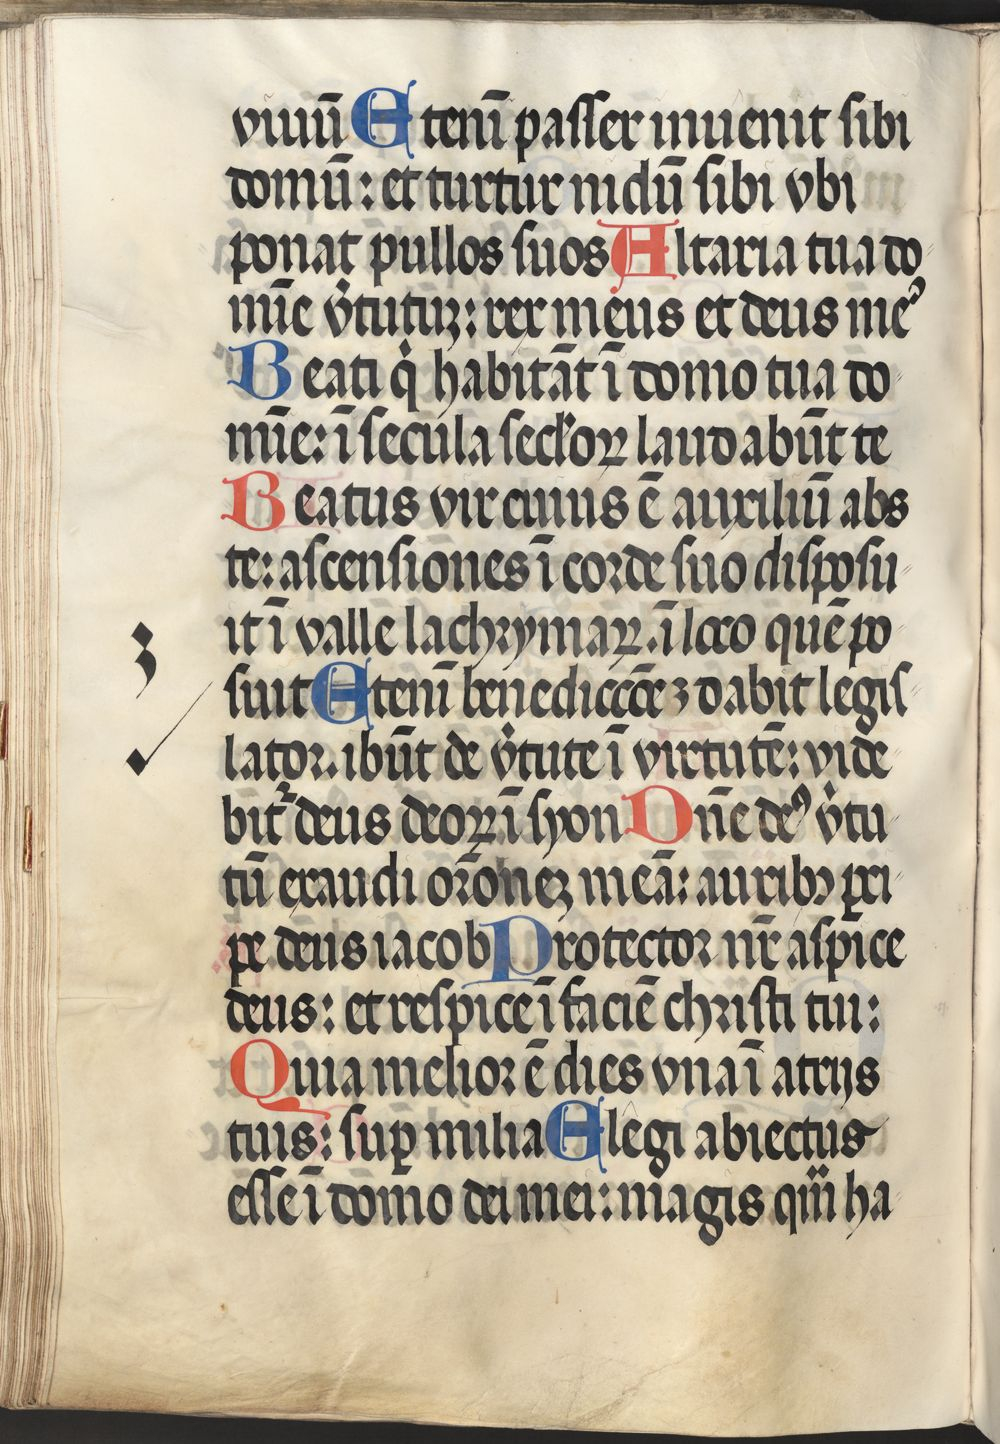 viuū Eteni̅ passer inuenit sibi
domū: et turtur nidū sibi vbi
ponat pullos suos Altaria tua do
mīe v̓tutuꝫ: rex meus et deus meꝰ
Beati qi̓ habitāt ī domo tua do
mīe: ī secula secl'oꝝ laudabūt te
Beatus vir cuius ē auxiliū abs
te: ascensiones ī corde suo disposu
it ī valle lachrymaꝝ .ī loco quē po
suit Etenī benedicc̄oeꝫ dabit legis
lator. ibūt de v̓tute ī virtutē: vide
bit᷑ deus deoꝝ ī syon Dn̄e deꝰ v̓tu
tū exaudi or̄oneꝫ meā: auribꝰ ꝑci
pe deus iacob Protector nr̄ aspice
deus: et respice ī faciē christi tui:
Quia melior ē dies vna ī atrijs
tuis: suꝑ milia Elegi abiectus
esse ī domo dei mei: magis qm̄ ha